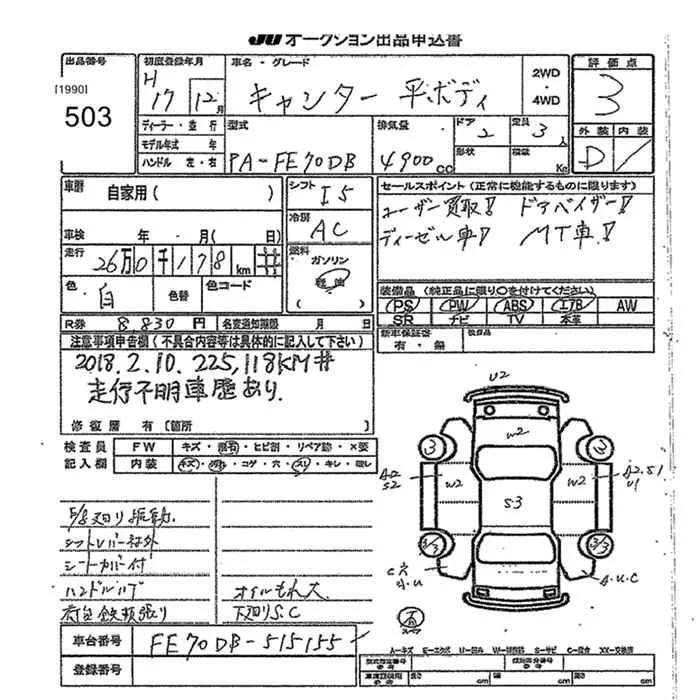 JU オークション出品申込書
出品番号
[1990]
503
初度登録年月
H
17 12月
車名・グレード
キャンター 平ボディ
2WD
・
4WD
評価点
3
外装 内装
D
ディーラー・並 行
モデル年式 年
ハンドル 左・右
型式
PA-FE70DB
排気量
4900cc
ドア
2
形状
定員
3人
積載
Kg
車歴
自家用( )
シフト
I5
車検 年・月( 日)
冷房
AC
走行
26万0千178km
燃料
ガソリン
軽油
( )
色
白
色替
色コード
R券 8,830円
名変通知期限 月 日
セールスポイント(正常に機能するものに限ります)
ユーザー買取! ドアバイザー!
ディーゼル車! MT車!
装備品(純正品に限り○を付けてください)
PS PW ABS エアB AW
SR ナビ TV 本革
新車保証書
有・無
注意事項申告欄(不具合内容等は具体的に記入して下さい)
2018.2.10. 225,118KM#
走行不明車歴あり.
修復歴 有(箇所 )
検査員
記入欄
FW
キズ・飛石・ヒビ割・リペア跡・×要
内装
キズ・汚れ・コゲ・穴・スレ・キレ・ムレ
シートカバー付
オイルもれ大
下廻りS.C
車台番号
FE70DB-515155
登録番号
U2
W2
3
3
A2
S2
W2
W2
A2.S1
U1
S3
3/3
3/3
C穴
A.U.C
スペア
A=キズ E=エクボ U=凹み W=補修跡 S=サビ C=腐食 X=要交換 XX=交換済
型式指定番号
類別区分番号
長さ cm
幅 cm
高さ cm